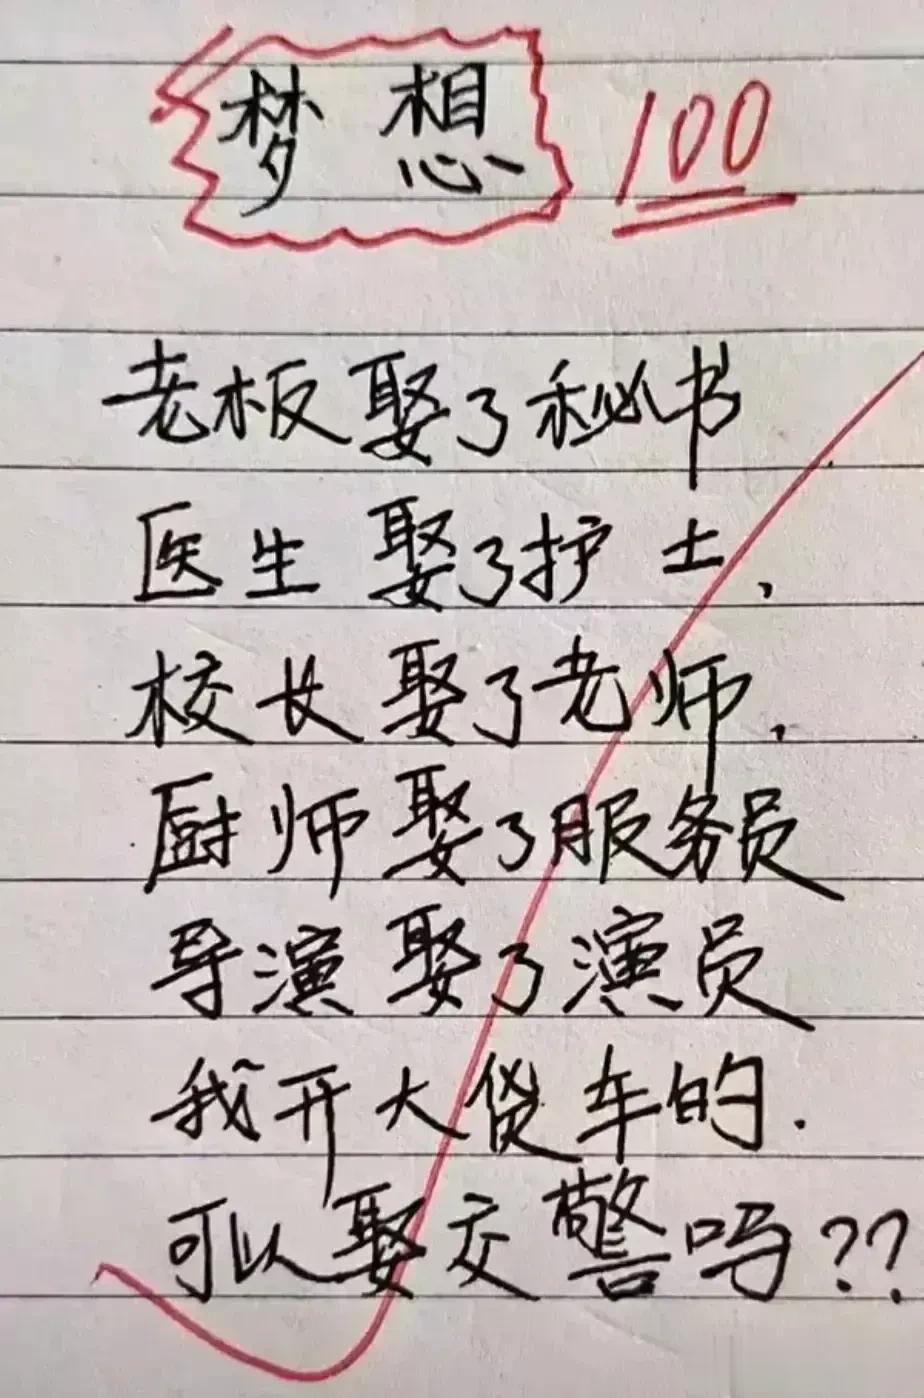 梦想 100
老板娶了秘书
医生娶了护士,
校长娶了老师,
厨师娶了服务员
导演娶了演员
我开大货车的.
可以娶交警吗??